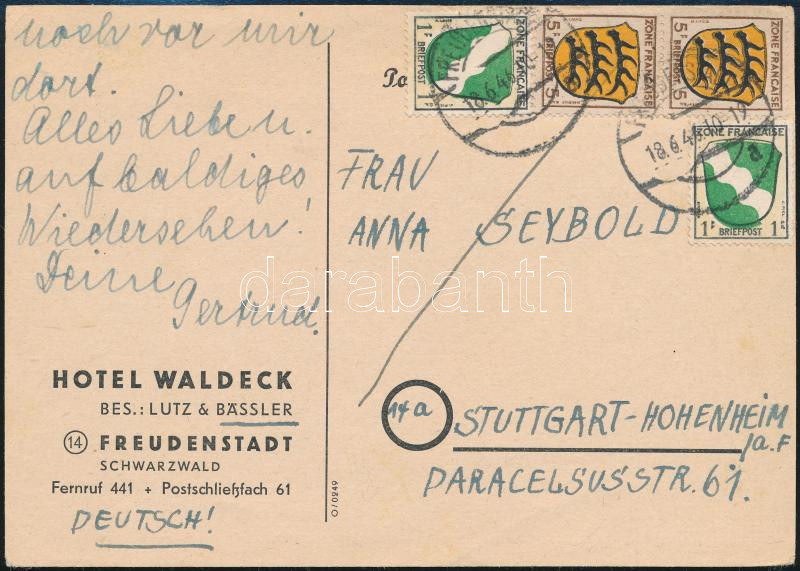 noch vor mir
dort.
Alles Liebe u.
auf baldiges
Wiedersehen!
Deine
Gertrud.
HOTEL WALDECK
BES.: LUTZ & BÄSSLER
14 FREUDENSTADT
SCHWARZWALD
Fernruf 441 + Postschließfach 61
DEUTSCH!
O/0249
1F BRIEFPOST 1F
ZONE FRANÇAISE
5F BRIEFPOST 5F
ZONE FRANÇAISE
5F BRIEFPOST 5F
ZONE FRANÇAISE
18.6.46
18.6.46.10-19
a
ZONE FRANÇAISE
1F BRIEFPOST 1F
FRAU
ANNA SEYBOLD
darabanth
14a STUTTGART-HOHENHEIM
/a.F
PARACELSUSSTR. 61.